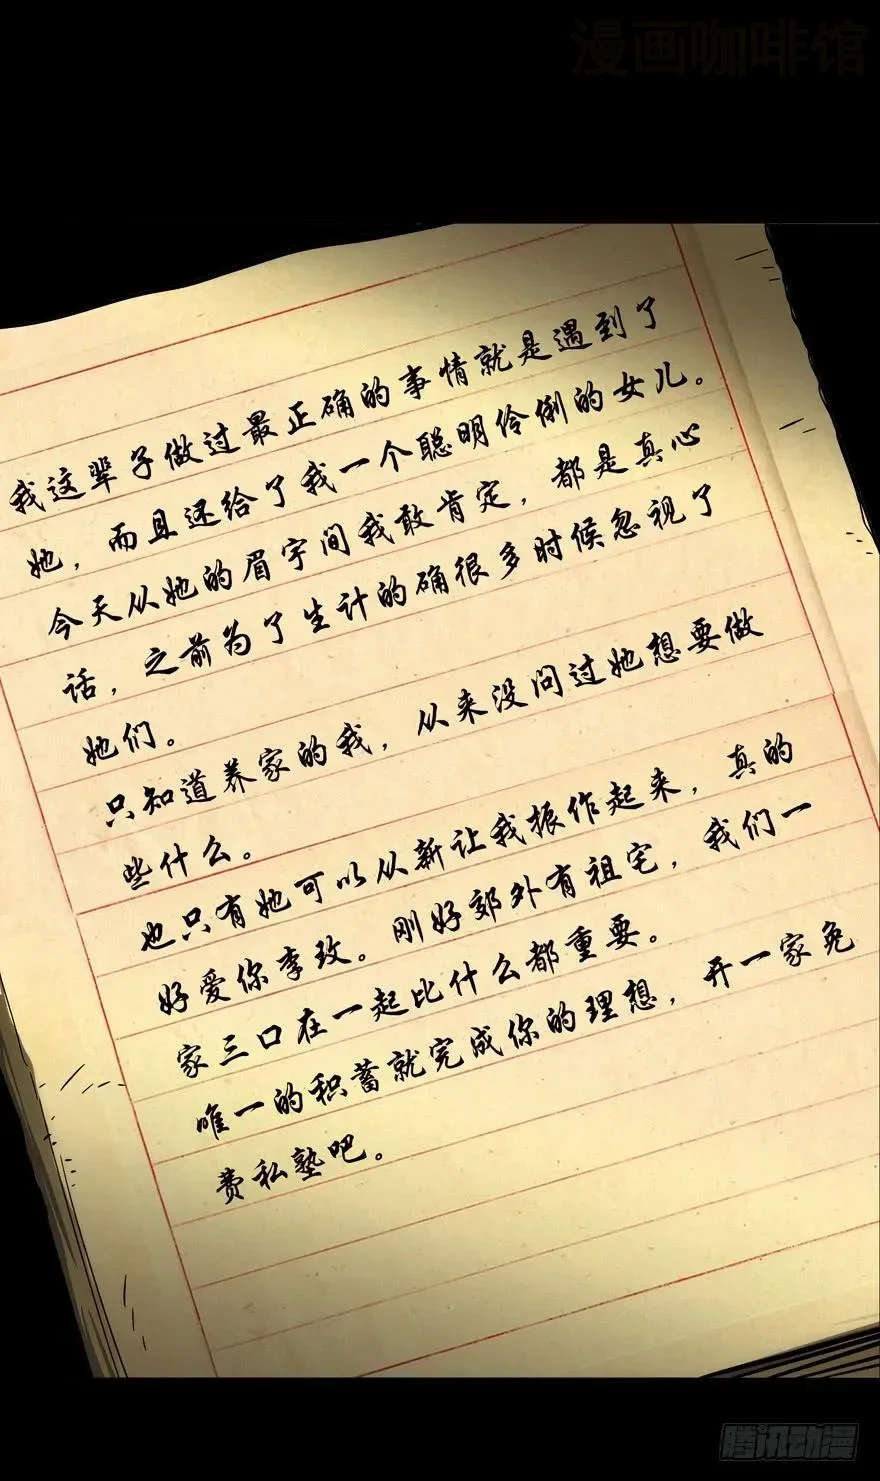 漫画咖啡馆
我这辈子做过最正确的事情就是遇到了
她，而且还给了我一个聪明伶俐的女儿。
今天从她的眉宇间我敢肯定，都是真心
话，之前为了生计的确很多时候忽视了
她们。
只知道养家的我，从来没问过她想要做
些什么。
也只有她可以从新让我振作起来，真的
好爱你李玫。刚好郊外有祖宅，我们一
家三口在一起比什么都重要。
唯一的积蓄就完成你的理想，开一家免
费私塾吧。
腾讯动漫